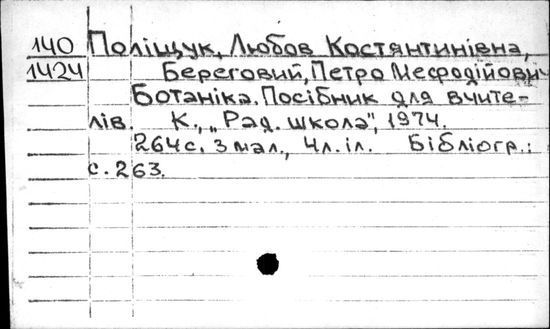 140 Поліщук, Любов Костянтинівна,
1424 Береговий, Петро Мефодійович
Ботаніка. Посібник для вчите-
лів. К., „Рад. школа", 1974.
264с. з мал., 4л. іл. Бібліогр.:
с. 263.